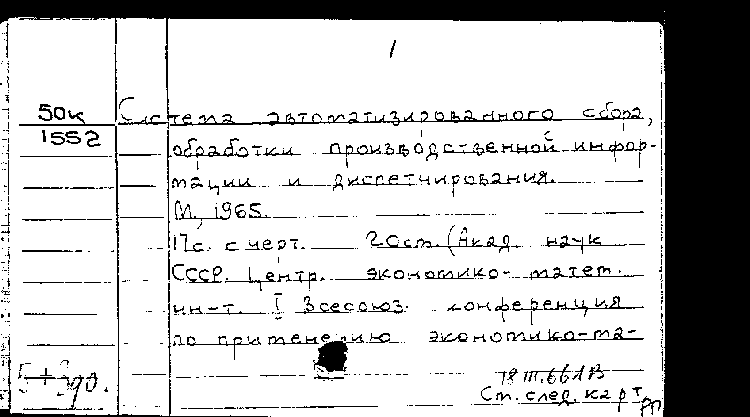 1
50к Система автоматизированного сбора,
1552 обработки производственной инфор-
мации и диспетчирования.
М., 1965.
17с. с черт. 20см. (Акад. наук
СССР. Центр. экономико-матем.
ин-т. I Всесоюз. конференция
по применению экономико-ма-
18 III.66
См. след. карт